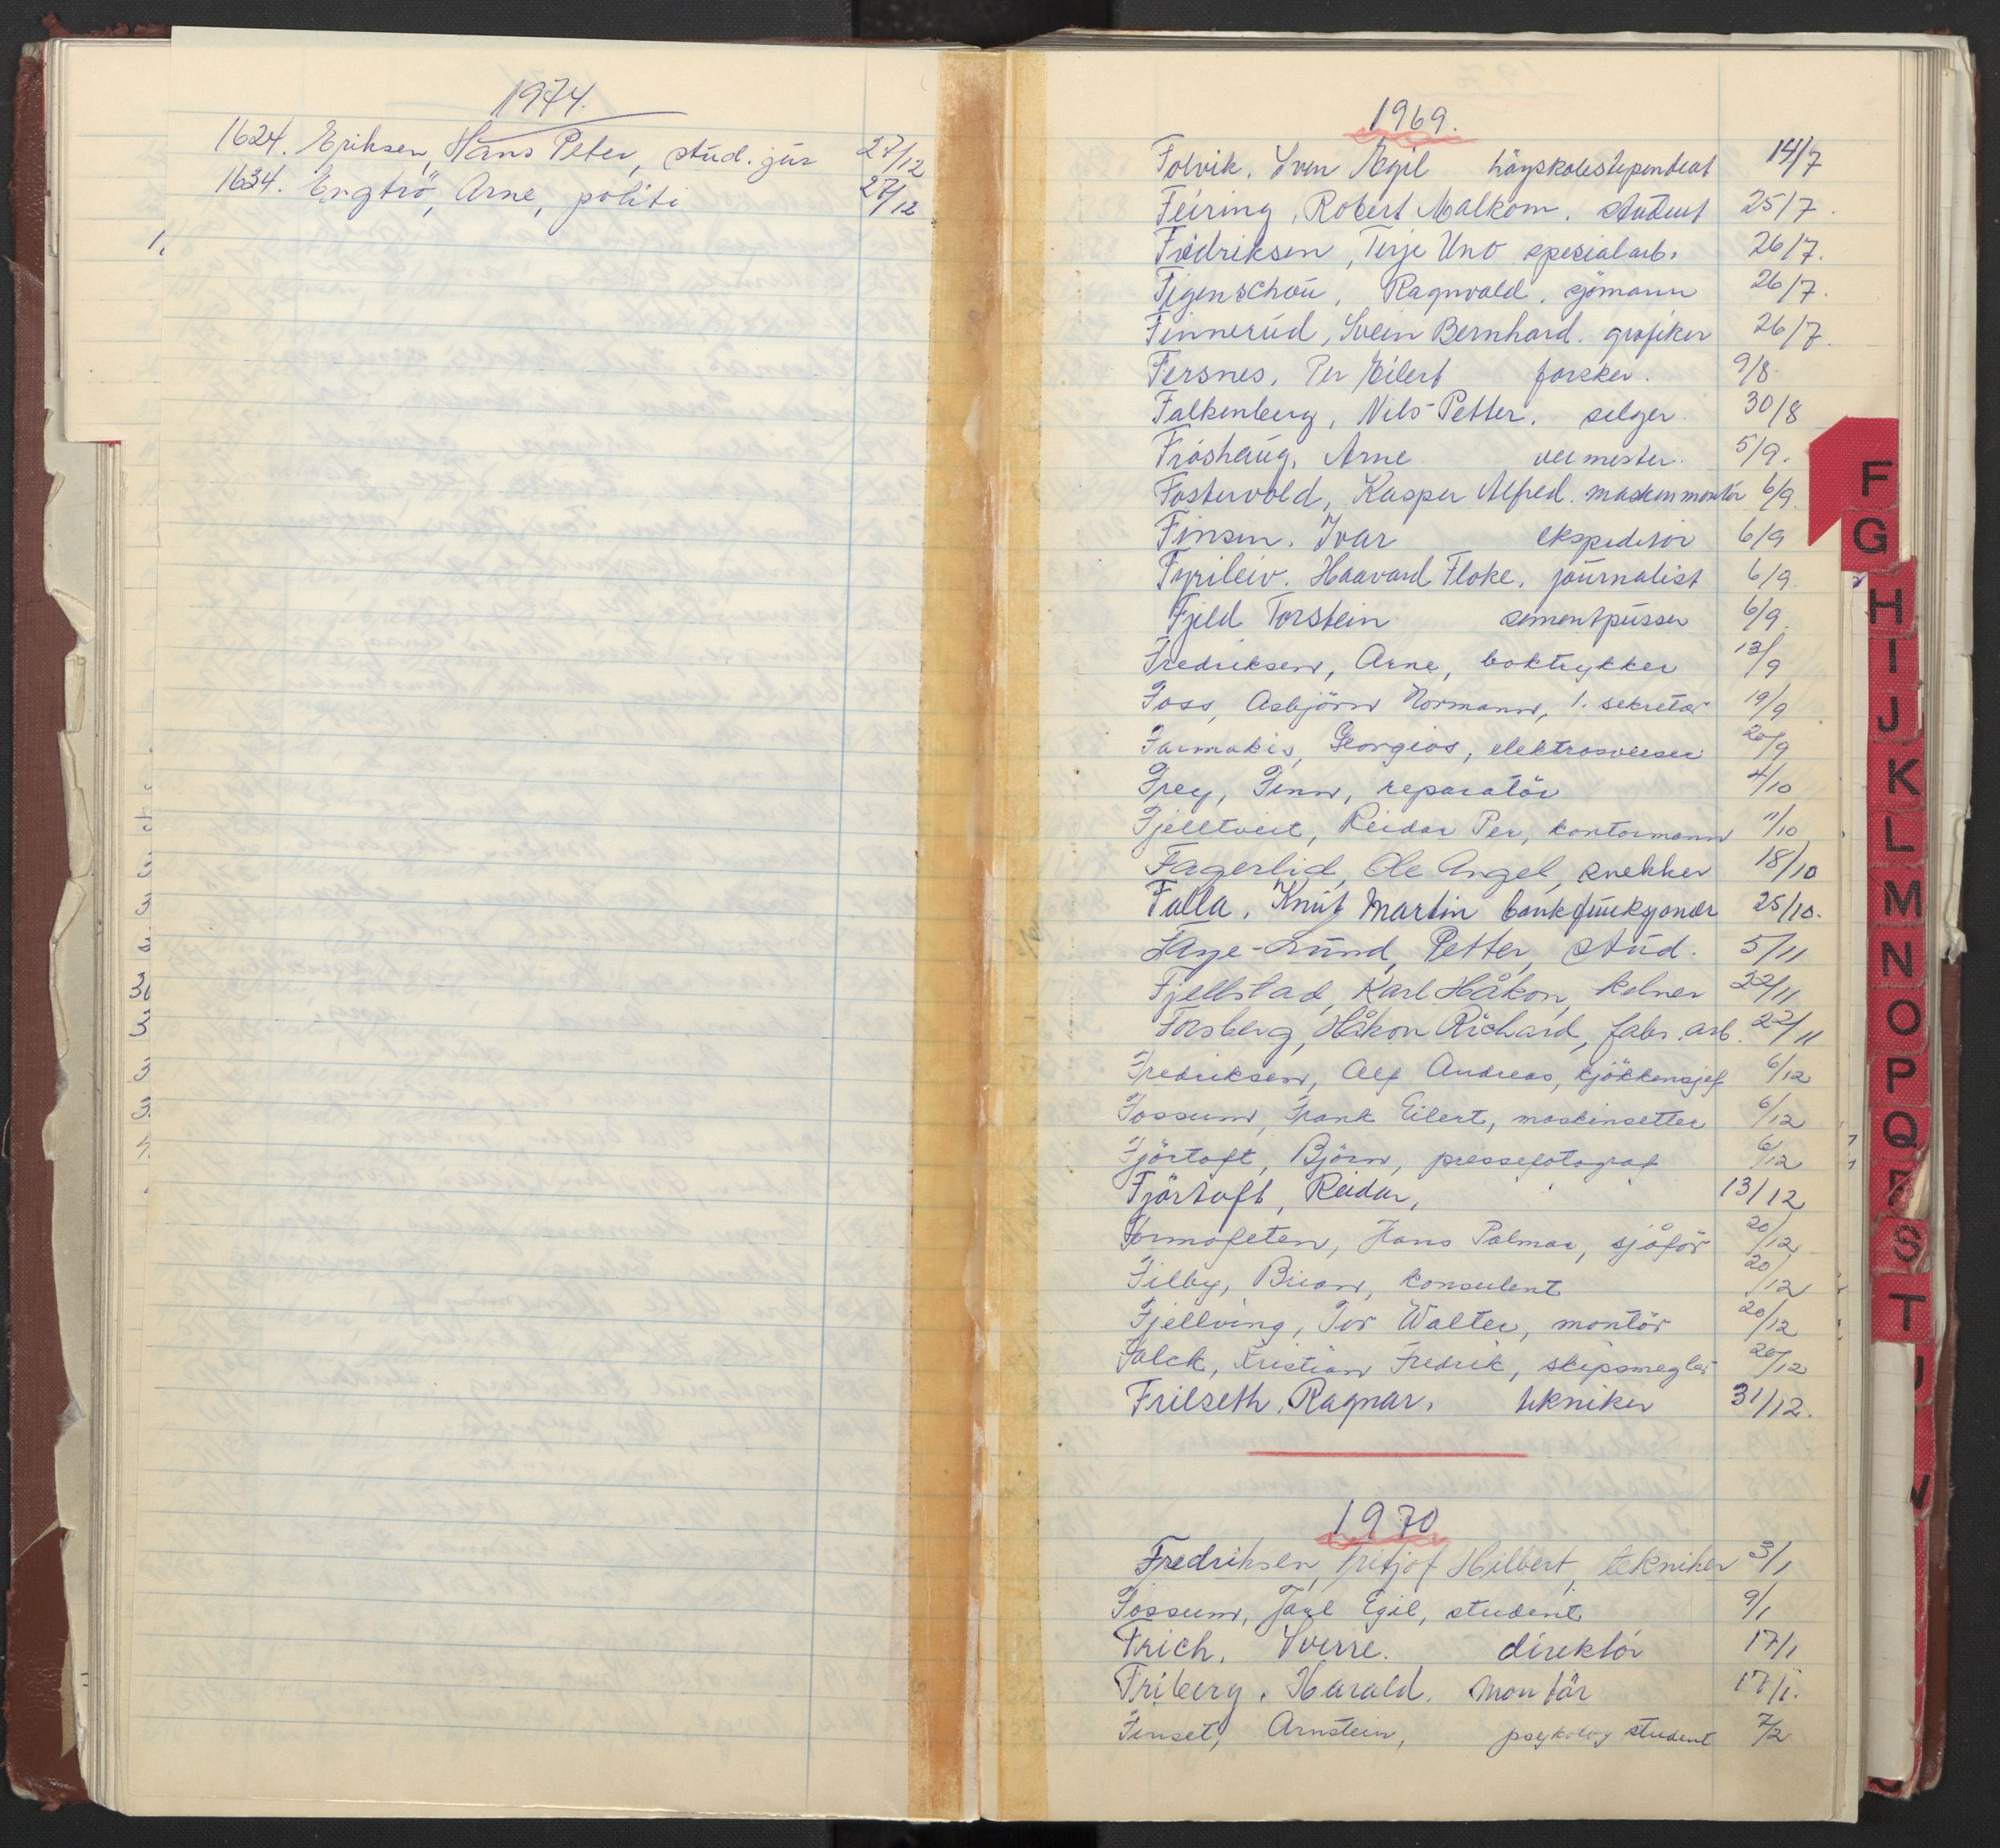 1974.
1624. Eriksen, Hans Peter, stud. jur 27/12
1634. Engtrö, Arne, politi 27/12
1969.
Folvik, Sven Egil höyskolestipendeat 14/7
Feiring, Robert Malkom. student 25/7.
Fredriksen, Terje Uno spesialarb. 26/7.
Figenschou, Ragnvald. sjömann 26/7.
Finnerud, Svein Bernhard. grafiker 26/7.
Fersnes, Per Eilert forsker. 9/8.
Falkenberg, Nils-Petter. selger. 30/8
Fröshaug, Arne vermester. 5/9.
Fostervold, Kasper Alfred. maskinmontör 6/9.
Finsen. Ivar ekspeditör 6/9
Fyrileiv. Haavard Floke. journalist 6/9.
Fjeld Torstein sementpusser 6/9.
Fredriksen, Arne, boktrykker 13/9
Foss, Asbjörn Normann, 1. sekretær 19/9
Farmakis, Georgios, elektrosveiser 20/9
Frey, Finn, reparatör 4/10
Fjelltveit, Reidar Per, kontormann 11/10
Fagerlid, Ole Angel, snekker 18/10
Falla, Knut Martin bankfunksjonær 25/10.
Faye-Lund, Petter, stud. 5/11
Fjellstad, Karl Håkon, kelner 22/11
Forsberg, Håkon Richard, fabr. arb. 22/11
Fredriksen, Alf Andreas, kjökkensjef 6/12
Fossum, Frank Eilert, maskinsetter 6/12
Fjörtoft, Björn, pressefotograf 6/12
Fjörtoft, Reidar, " " 13/12
Formofeten, Hans Palmar, sjåför 20/12
Filby, Brian, konsulent 20/12
Fjellving, Tor Walter, montör 20/12
Falck, Kristian Fredrik, skipsmegler 20/12
Frilseth, Ragnar. tekniker 31/12.
1970
Fredriksen, Fritjof Hilbert, tekniker 3/1
Fossum, Jarl Egil, student 9/1
Frich, Sverre. direktör 17/1
Friberg, Harald. Montör 17/1.
Finset, Arnstein, psykologstudent 7/2
F
G
H
I
J
K
L
M
N
O
P
Q
R
S
T